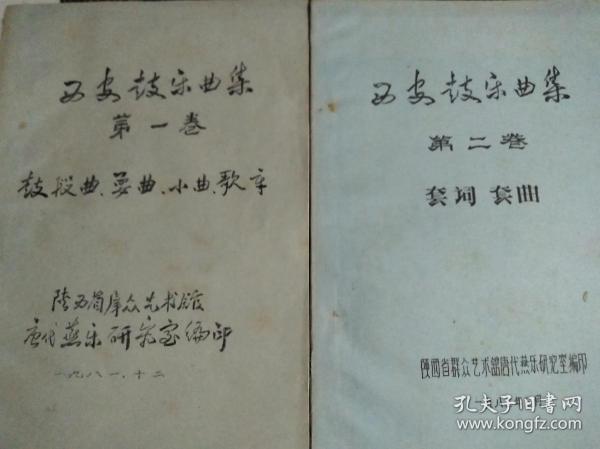 西安鼓乐曲集
第一卷
鼓段曲、耍曲、小曲、歌章
陕西省群众艺术馆
唐代燕乐研究室编印
一九八一.十二
西安鼓乐曲集
第二卷
套词 套曲
陕西省群众艺术馆唐代燕乐研究室编印
一九八
孔夫子旧书网
www.kongfz.com